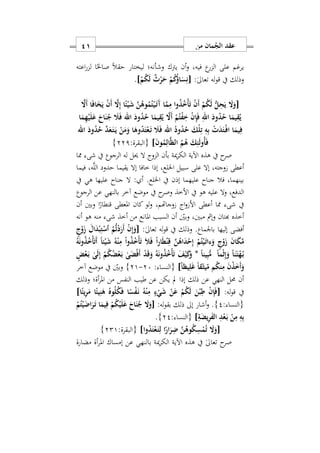 عقد الجُمان من
٤١
يرغم على الزرع فيه، وأن يترك وشأنه؛ ليختار حقلاً صالحًا لزراعته
وذلك في قوله تعالىٰ: [نِسَاؤُكُمْ حَرْثٌ لَّكُمْ].
[وَلاَ يَحِلُّ لَكُمْ أَن تَأْخُذُواْ مِمَّا آتَيْتُمُوهُنَّ شَيْئًا إِلاَّ أَن يَخَافَا أَلاَّ
يُقِيمَا حُدُودَ اللهِ فَإِنْ خِفْتُمْ أَلاَّ يُقِيمَا حُدُودَ اللهِ فَلاَ جُنَاحَ عَلَيْهِمَا
فِيمَا افْتَدَتْ بِهِ تِلْكَ حُدُودُ اللهِ فَلاَ تَعْتَدُوهَا وَمَن يَتَعَدَّ حُدُودَ اللهِ
فَأُوْلَئِكَ هُمُ الظَّالِمُونَ] {البقرة:٢٢٩}
صرح في هذه الآية الكريمة بأن الزوج لا يحل له الرجوع في شيء مما
أعطى زوجته، إلا على سبيل الخلع، إذا خافا إلا يقيما حدود اللَّه، فيما
بينهما، فلا جناح عليهما إذن في الخلع. أي: لا جناح عليها هي في
الدفع، ولا عليه هو في الأخذ وصرح في موضع آخر بالنهي عن الرجوع
في شيء مما أعطى الأزواج زوجاتهم، ولو كان المعطى قنطارًا وبين أن
أخذه بهتان وإثم مبين، وبيَّن أن السبب المانع من أخذ شيء منه هو أنه
أفضى إليها بالجماع. وذلك في قوله تعالىٰ: [وَإِنْ أَرَدتُّمُ اسْتِبْدَالَ زَوْجٍ
مَّكَانَ زَوْجٍ وَآتَيْتُمْ إِحْدَاهُنَّ قِنطَاراً فَلاَ تَأْخُذُواْ مِنْهُ شَيْئاً أَتَأْخُذُونَهُ
بُهْتَاناً وَإِثْماً مُّبِيناً * وَكَيْفَ تَأْخُذُونَهُ وَقَدْ أَفْضَى بَعْضُكُمْ إِلَى بَعْضٍ
وَأَخَذْنَ مِنكُم مِّيثَاقاً غَلِيظاً] {النساء: ٢٠-٢١} وبيَّن في موضع آخر
أن محل النهي عن ذلك إذا لم يكن عن طيب النفس من المرأة؛ وذلك
في قوله: [فَإِن طِبْنَ لَكُمْ عَن شَيْءٍ مِّنْهُ نَفْسًا فَكُلُوهُ هَنِيئًا مَّرِيئًا]
{النساء:٤}. وأشار إلى ذلك بقوله: [وَلاَ جُنَاحَ عَلَيْكُمْ فِيمَا تَرَاضَيْتُمْ
بِهِ مِن بَعْدِ الْفَرِيضَةِ] {النساء:٢٤}.
[وَلاَ تُمْسِكُوهُنَّ ضِرَارًا لِّتَعْتَدُواْ] {البقرة:٢٣١}
صرح تعالىٰ في هذه الآية الكريمة بالنهي عن إمساك المرأة مضارة